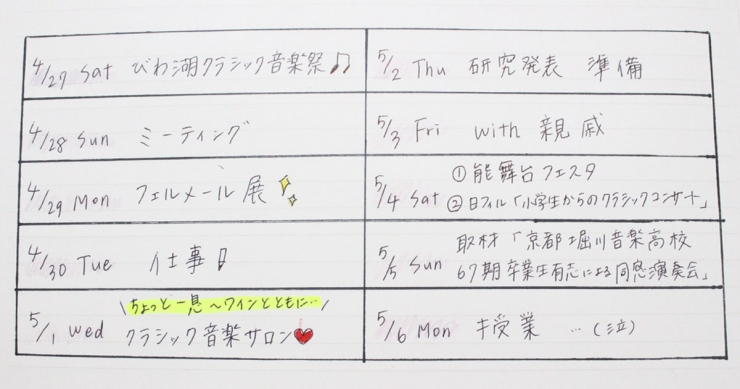 4/27 Sat びわ湖クラシック音楽祭♫
4/28 Sun ミーティング
4/29 Mon フェルメール展
4/30 Tue 仕事!
\ちょっと一息〜ワインとともに…/
5/1 Wed クラシック音楽サロン♥
5/2 Thu 研究発表 準備
5/3 Fri with 親戚
①能舞台フェスタ
5/4 Sat ②日フィル「小学生からのクラシックコンサート」
取材「京都堀川音楽高校
5/5 Sun 67期卒業生有志による同窓演奏会」
5/6 Mon 授業 …(泣)